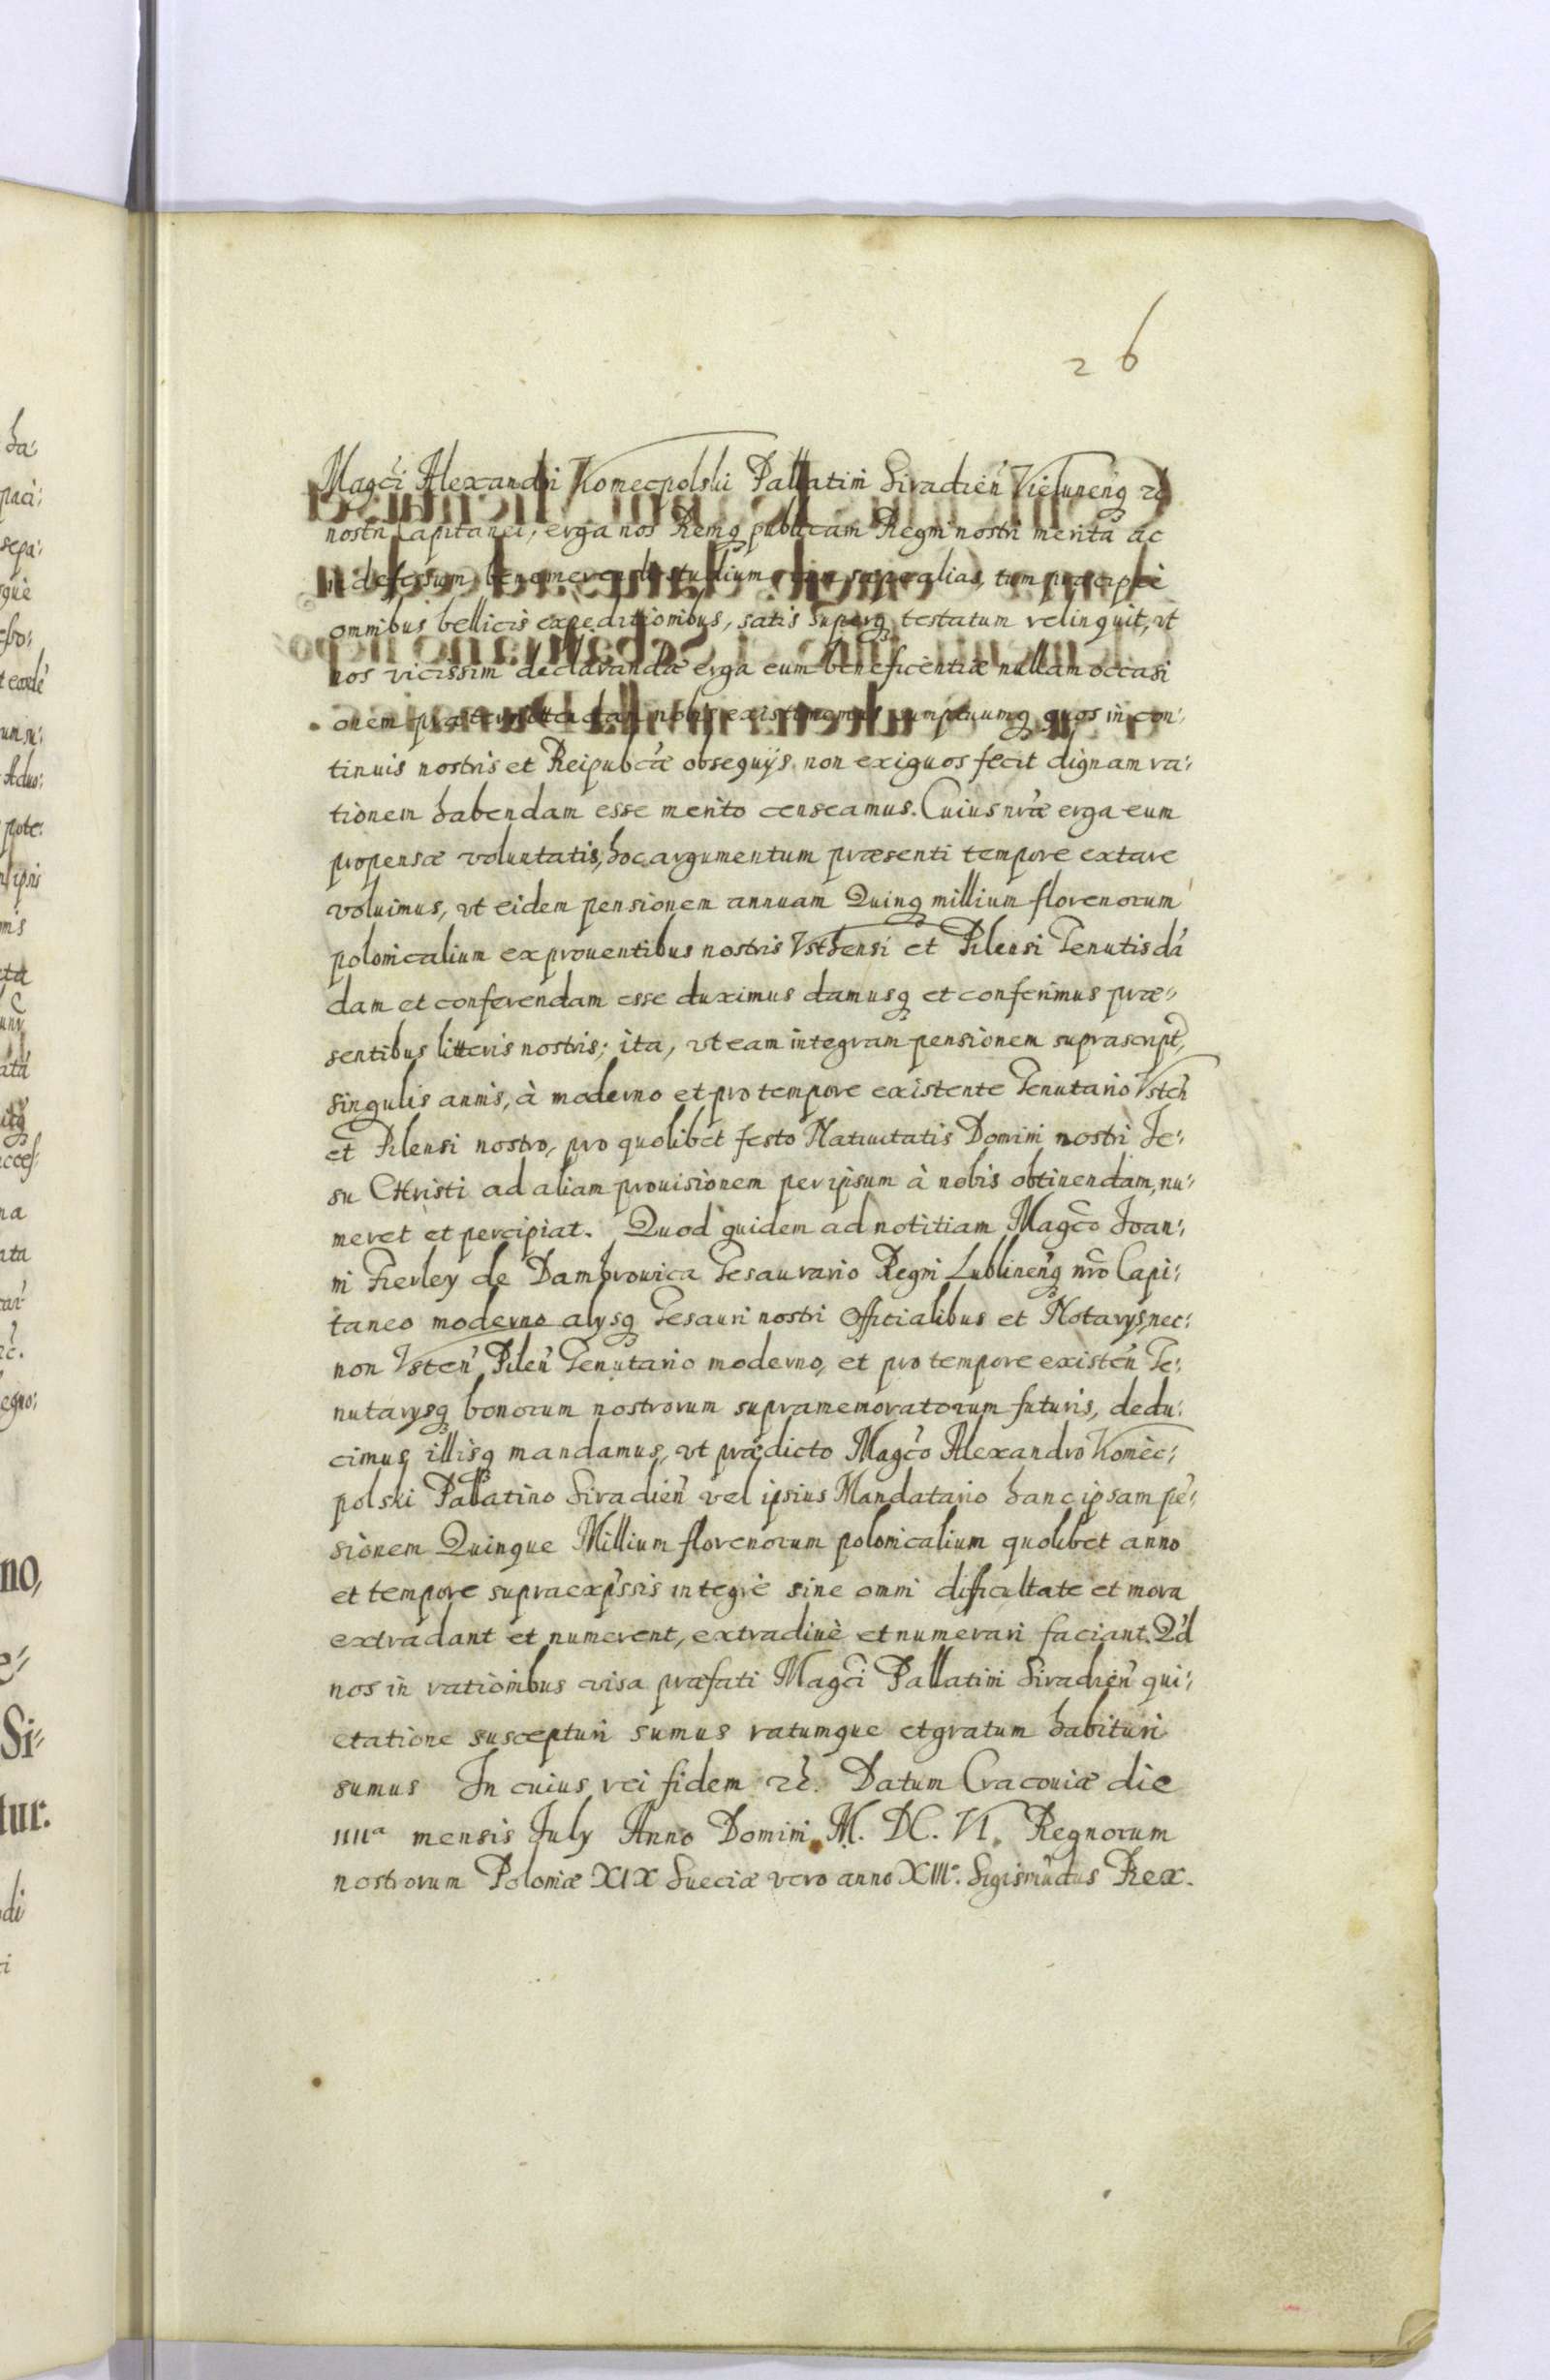 26
Magći Alexandri Koniecpolski Pallatini Siradień Vieluneńq etć
nostri Capitanei, erga nos Remq publicam Regni nostri merita ac
indefessum benemerendi studium cum saepe alias, tum praecipuè
omnibus bellicis expeditionibus, satis superq testatum relinquit, vt
nos vicissim declarandæ erga eum beneficentiæ nullam occasi
onem prætermittendam nobis existimemus sumptuumq quos in con:
tinuis nostris et Reipubcæ obsequijs non exiguos fecit dignam ra:
tionem habendam esse merito censeamus. Cuius nræ erga eum
propensæ voluntatis, hoc argumentum præsenti tempore extare
voluimus, vt eidem pensionem annuam Quinq millium florenorum
polonicalium ex prouentibus nostris Vsthensi et Pilensi Tenutis dā
dam et conferendam esse duximus damusq et conferimus præ:
sentibus litteris nostris; ita, vt eam integram pensionem suprascript,
singulis annis, à moderno et pro tempore existente Tenutario Vsteń
et Pilensi nostro, pro quolibet festo Natiuitatis Domini nostri Je:
su Christi ad aliam prouisionem per ipsum à nobis obtinendam, nu:
meret et percipiat. Quod quidem ad notitiam Magco Joan:
ni Firley de Dambrouica Tesaurario Regni Lublineńq nro Capi:
taneo moderno alysq Tesauri nostri Officialibus et Notarys, nec:
non Vsteń Pileń Tenutario moderno, et pro tempore existeń Te:
nutarysq bonorum nostrorum supramemoratorum futuris, dedu:
cimus, illisq mandamus, vt prædicto Magco Alexandro Koniec:
polski Pallatino Siradień vel ipsius Mandatario hanc ipsam pē:
sionem Quinque Millium florenorum polonicalium quolibet anno
et tempore supraexpssis integrè sine omni dificultate et mora
extradant et numerent, extradiuè et numerari faciant. Qd
nos in rationibus visa præfati Magci Pallatini Siradień qui:
etatione suscepturi sumus ratumque et gratum habituri
sumus In cuius rei fidem etć. Datum Cracouiæ die
IIIIa mensis July Anno Domini M. DC. VI. Regnorum
nostrorum Poloniæ XIX Sueciæ vero anno XIIIo. Sigismūdus Rex.